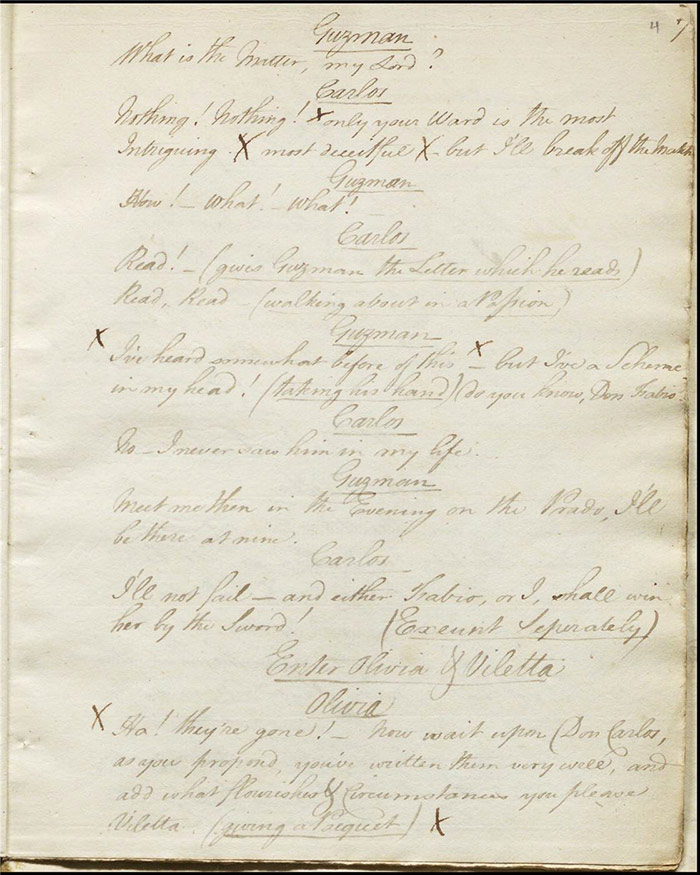 4 7
Guzman
What is the Matter, my Lord?
Carlos
Nothing! Nothing! x only your Ward is the most
Intriguing X most deceitful X - but I'll break off the Match
Guzman
How! - What! - What!
Carlos
Read! - (gives Guzman the Letter which he reads)
Read, Read - (walking about in a Passion)
Guzman
X I've heard somewhat before of this X - but I've a Scheme
in my head! (taking his hand) (do you know, Don Fabio
Carlos
No - I never saw him in my life.
Guzman
Meet me then in the Evening on the Prado, I'll
be there at nine.
Carlos
I'll not fail - and either Fabio, or I, shall win
her by the Sword! (Exeunt Seperately)
Enter Olivia & Viletta
Olivia
X Ha! they're gone! - now wait upon (Don Carlos,
as you propond, you've written them very well, and
add what flourishes & Circumstances you please
Viletta (giving a Pacquet) X